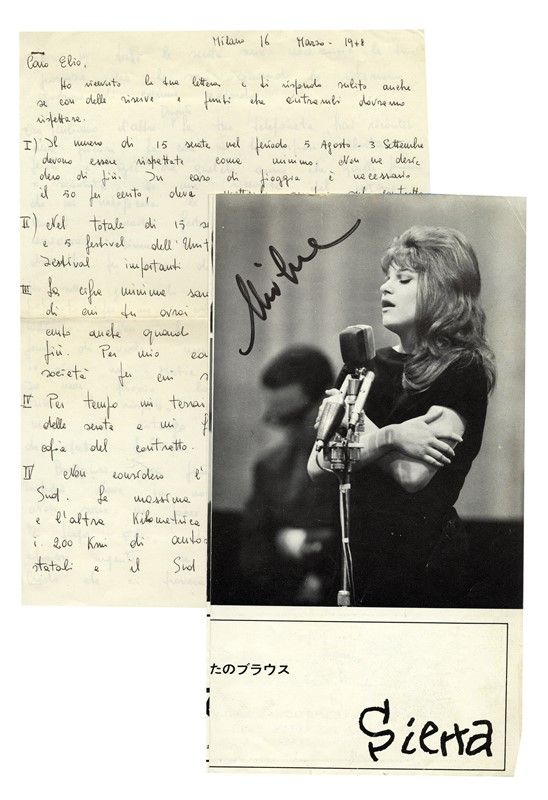 Milano 16 Marzo - 1978
Caro Elio,
Ho ricevuto la tua lettera e ti rispondo subito anche
se con delle riserve e punti che entrambi dovremo
rispettare.
I) Il numero di 15 serate nel periodo 5 Agosto - 3 Settembre
devono essere rispettate come minimo. Non ne desi
dero di più. In caso di pioggia è necessario
il 50 per cento, deve sul contratto
II) Nel totale di 15 se
e 5 festival dell'Unit
Festival importanti
III La cifra minima sarà
di cui tu avrai
cento anche quand
più. Per mio con
società per cui s
IV Per tempo mi
delle serate e mi
copia del contratto.
IV Non considero l'
Sud. La massima
e l'altra Kilometrica
i 200 Kmi di auto
statali e il Sud
たのブラウス
Sierra